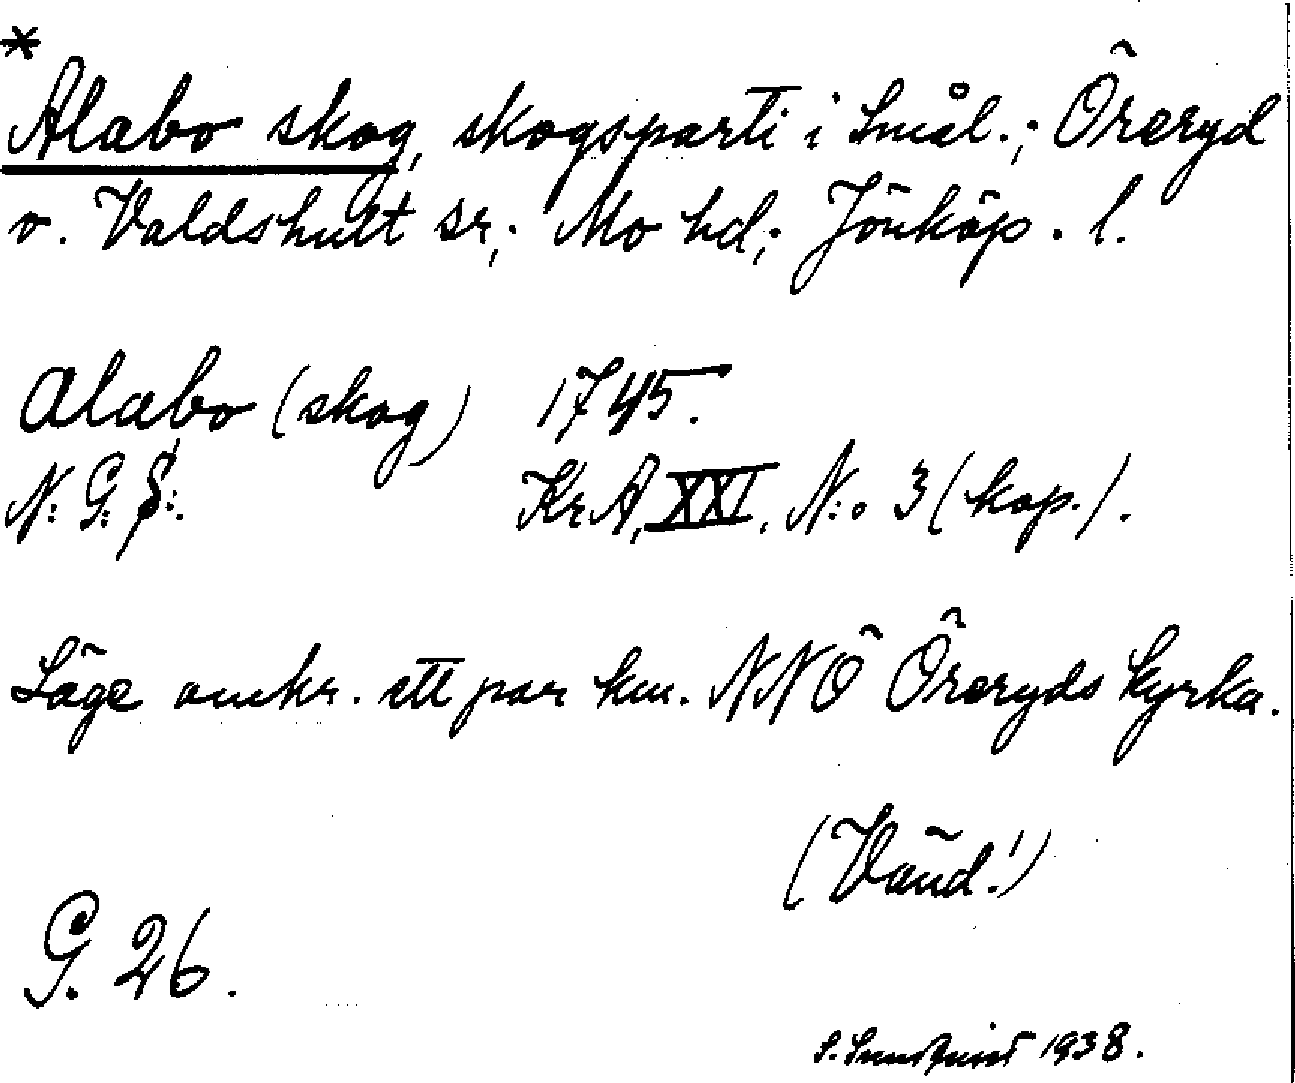 *
Alabo skog, skogsparti i Smål.; Öreryd
o. Valdshult sr,; Mo hd,; Jönköp. l.
Alabo (skog) 1745.
N: G: S:.
KrA, XXI, N:o 3 (kop.).
Läge omkr. ett par km. NNÖ Öreryds kyrka.
(Vänd!)
G. 26.
S. 1938.